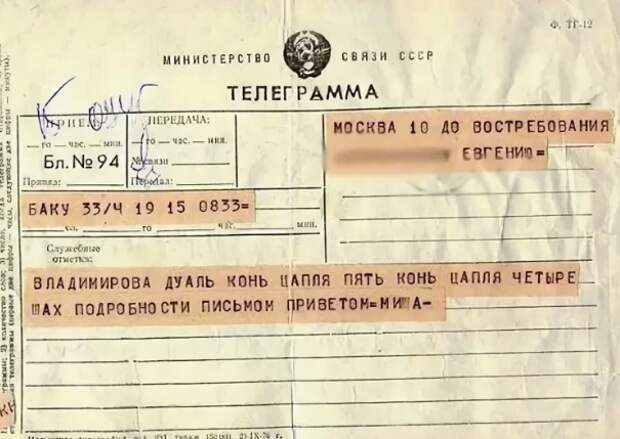 Ф. ТГ-12
МИНИСТЕРСТВО СВЯЗИ СССР
ТЕЛЕГРАММА
ПРИЕМ:
ПЕРЕДАЧА:
го час. мин.
го час. мин.
Бл. № 94
№ связи
Принял:
Передал:
МОСКВА 10 ДО ВОСТРЕБОВАНИЯ
ЕВГЕНИЮ=
БАКУ 33/Ч 19 15 0833=
час. мин.
Служебные
отметки:
ВЛАДИМИРОВА ДУАЛЬ КОНЬ ЦАПЛЯ ПЯТЬ КОНЬ ЦАПЛЯ ЧЕТЫРЕ
ШАХ ПОДРОБНОСТИ ПИСЬМОМ ПРИВЕТОМ=МИША-